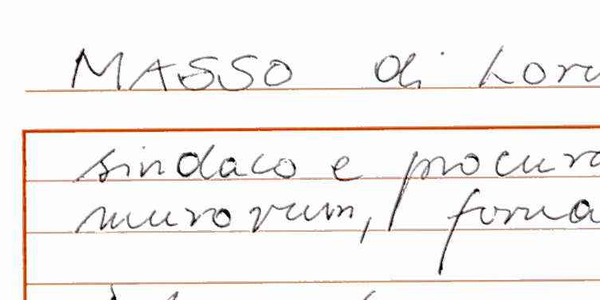 MASSO di Lore
sindaco e procura
murorum, forna